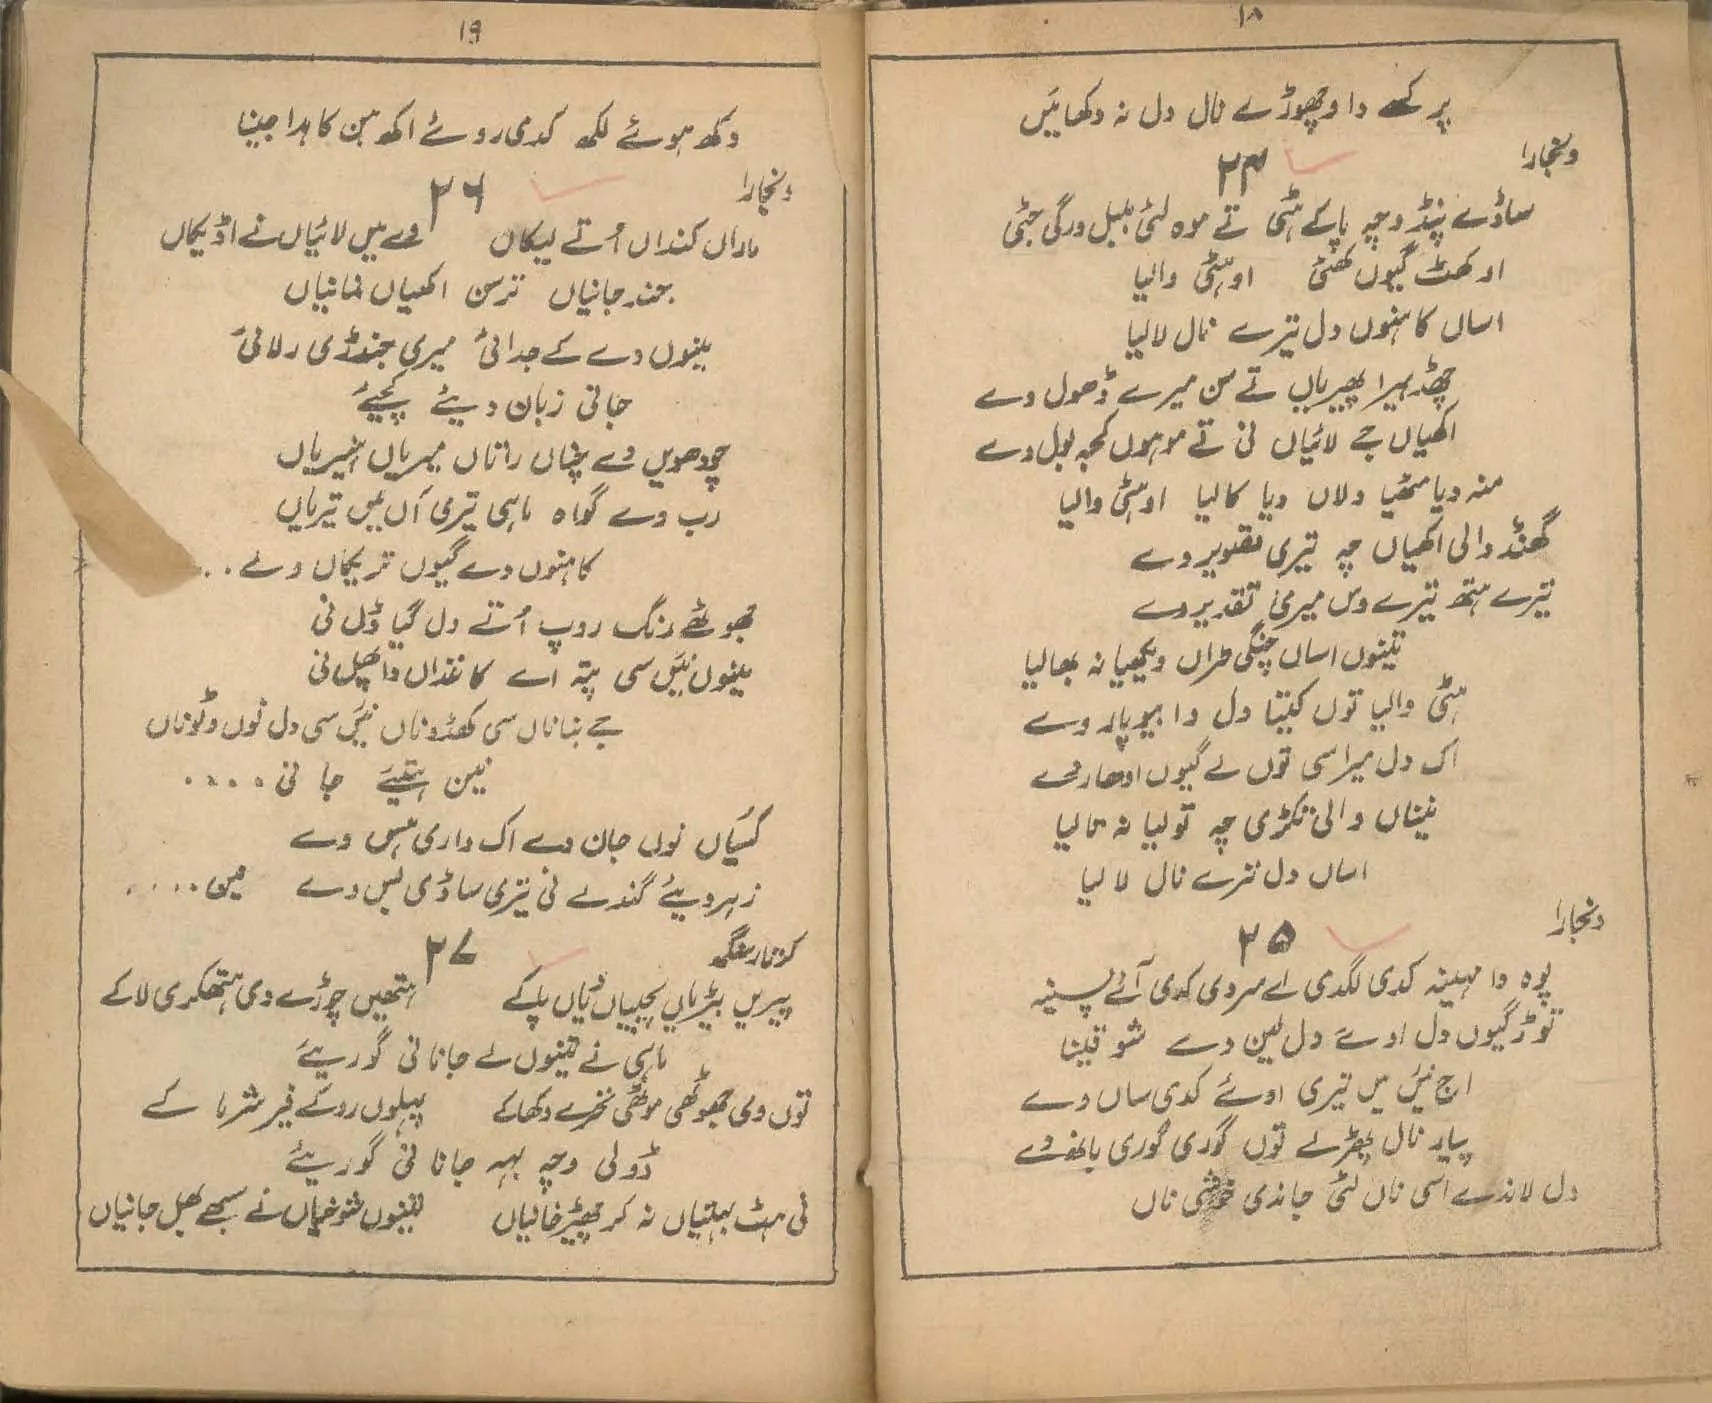 ۱۸
پر کسے دا وچھوڑے نال دل نہ دکھائیں
ونجارا
۲۴
ساڈے پنڈ وچہ پاکے ہٹی تے موہ لئی بلبل ورگی جٹی
او کھٹ گیوں کھٹی او ہٹی والیا
اساں کاہنوں دل تیرے نال لا لیا
چھڈ ہیرا پھیریاں تے سن میرے ڈھول وے
اکھیاں جے لائیاں نی تے موہوں کجہ بول وے
منہ دیا مٹھیا دلاں دیا کالیا او ہٹی والیا
گھنڈ والی اکھیاں چہ تیری تصویر وے
تیرے ہتھ تیرے وس میری تقدیر وے
تینوں اساں چنگی طراں ویکھیا نہ بھالیا
ہٹی والیا توں کیتا دل دا بیوپار وے
اک دل میرا سی توں لے گیوں ادھار وے
نیناں والی تکڑی چہ تولیا نہ تالیا
اساں دل تیرے نال لا لیا
ونجارا
۲۵
پوہ دا مہینہ کدی لگدی اے سردی کدی آئے پسینہ
توڑ گیوں دل اوئے دل لین دے شوقینا
اج نیئں میں تیری اوئے کدی ساں وے
پیار نال پھڑ لے توں گوری گوری بانھ وے
دل لاندے اسی ناں لئی جاندی خوشی ناں
۱۹
دکھ ہوئے لکھ کدی روئے اکھ ہن کاہدا جینا
ونجارا
۲۶
ماراں کنداں اُتے لیکاں وے میں لائیاں نے اڈیکاں
جند جانیاں ترسن اکھیاں نمانیاں
مینوں دے کے جدائی میری جندڑی رلائی
جانی زبان دیئے کچیئے
چودھویں دے چناں راتاں میریاں ہنیریاں
رب وے گواہ ماہی تیری آں میں تیریاں
کاہنوں دے گیوں تریکاں وے ..
جھوٹھے رنگ روپ اُتے دل گیا ڈل نی
مینوں نیئں سی پتہ اے کاغذاں دا پھل نی
جے بناناں سی کھڈوناں نیئں سی دل نوں وٹوناں
نین ہتیئے جانی ....
گئیاں نوں جان دے اک واری ہس وے
زہر دیئے گندلے نی تیری ساڈی بس وے مین ....
کرتار سنگھ
۲۷
پیریں بیڑیاں لچھیاں دیاں پاکے ہتھیں چوڑے دی ہتھکڑی لا کے
ماہی نے تینوں لے جانا نی گوریئے
توں وی جھوٹھی موٹھی نخرے دکھا کے پہلوں رو کے فیر شرما کے
ڈولی وچہ بہہ جانا نی گوریئے
نی ہٹ بہتیاں نہ کر چھیڑ خانیاں تینوں شوخیاں نے سبھے بھل جانیاں